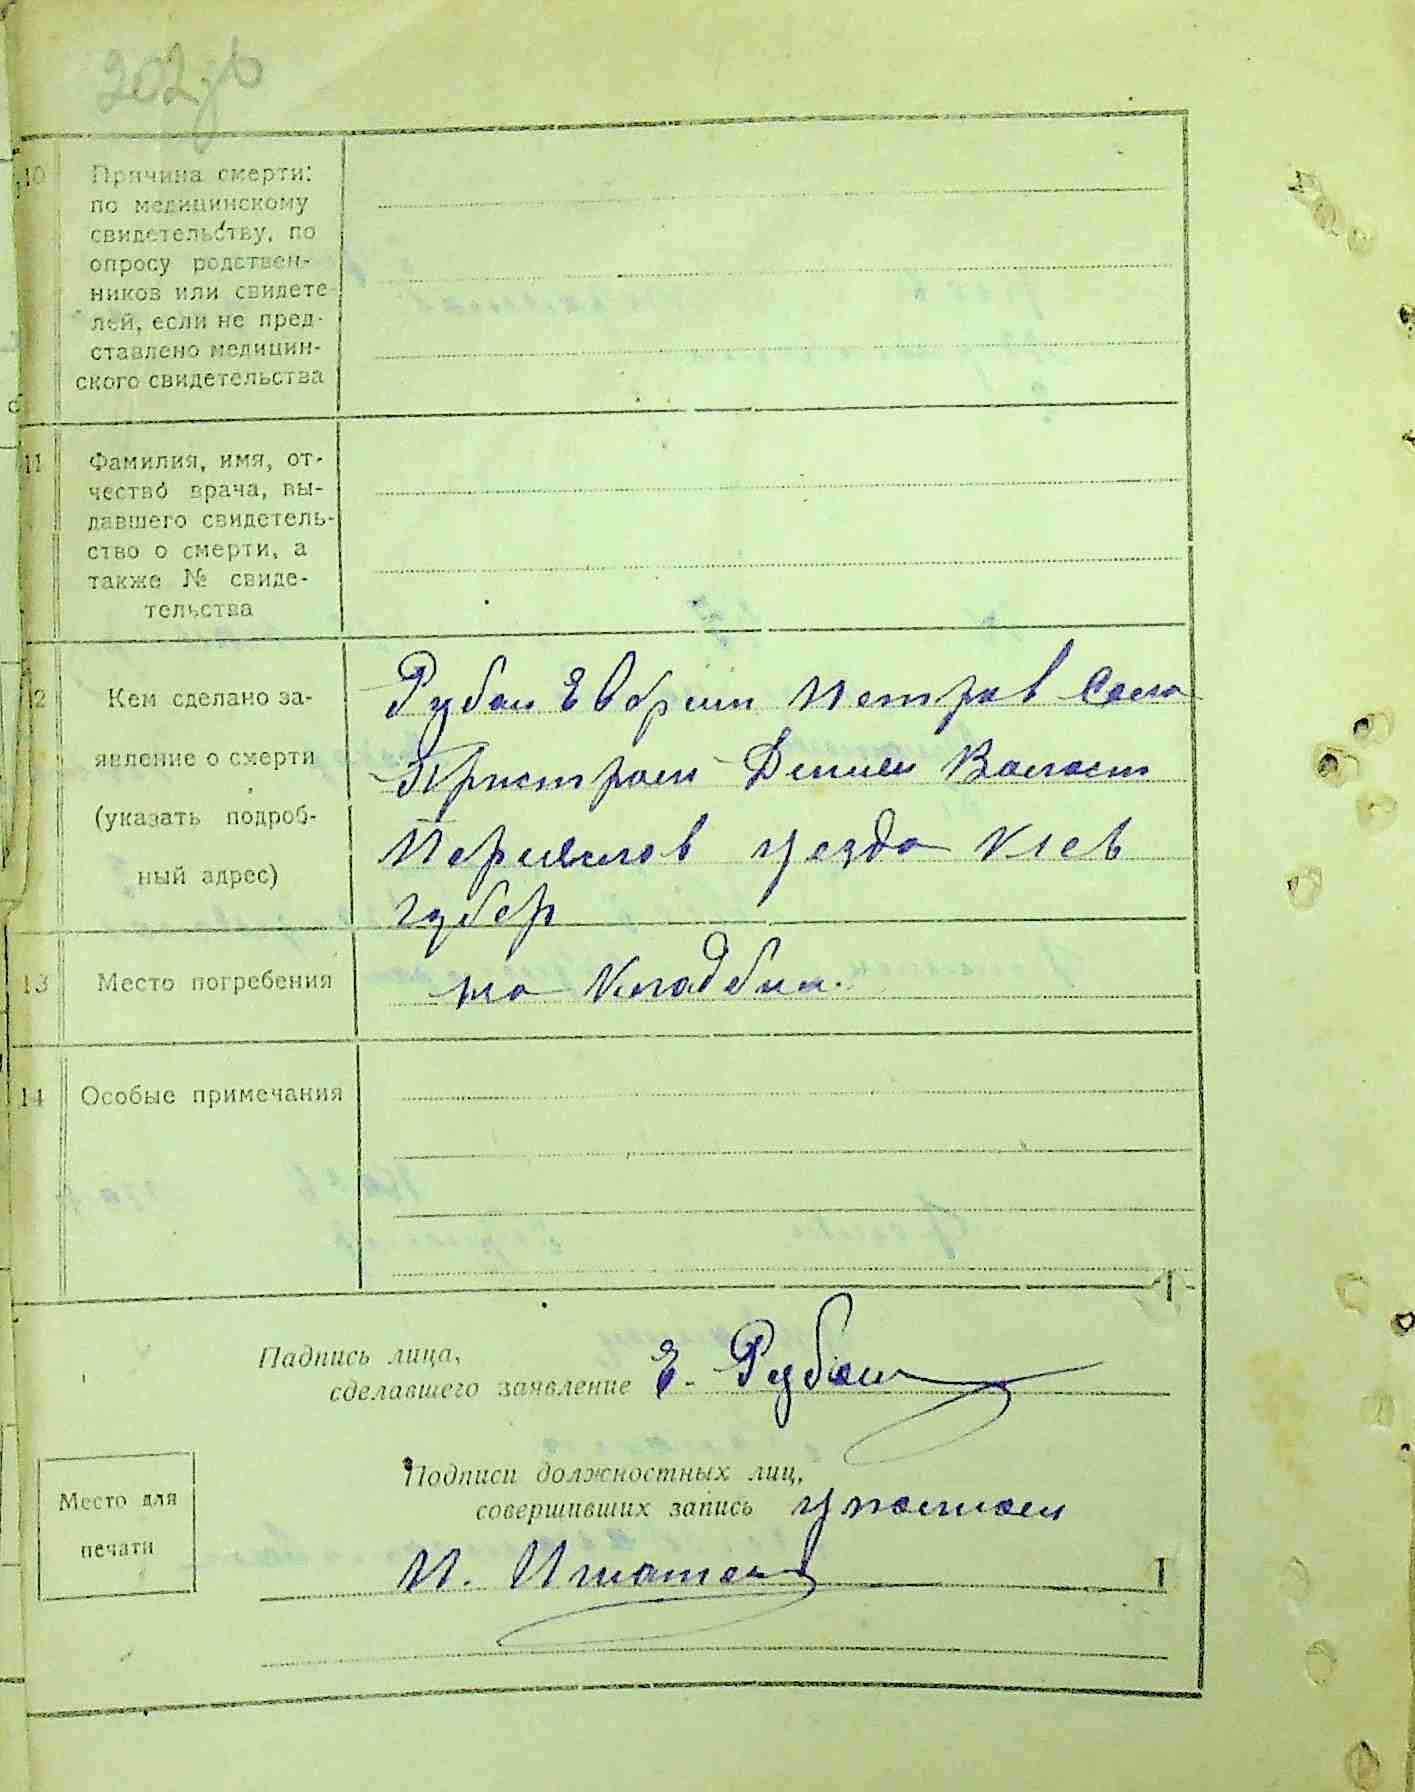 202 об
10 Причина смерти:
по медицинскому
свидетельству, по
опросу родствен-
ников или свидете-
лей, если не пред-
ставлено медицин-
ского свидетельства
11 Фамилия, имя, от-
чество врача, вы-
давшего свидетель-
ство о смерти, а
также № свиде-
тельства
12 Кем сделано за-
явление о смерти
(указать подроб-
ный адрес)
Рубан Петров Села
Волост
уезда Киев
губер
13 Место погребения
на Кладбищ.
14 Особые примечания
Падпись лица,
сделавшего заявление Е. Рубан
Подписи должностных лиц,
совершивших запись
И.
Место для
печати